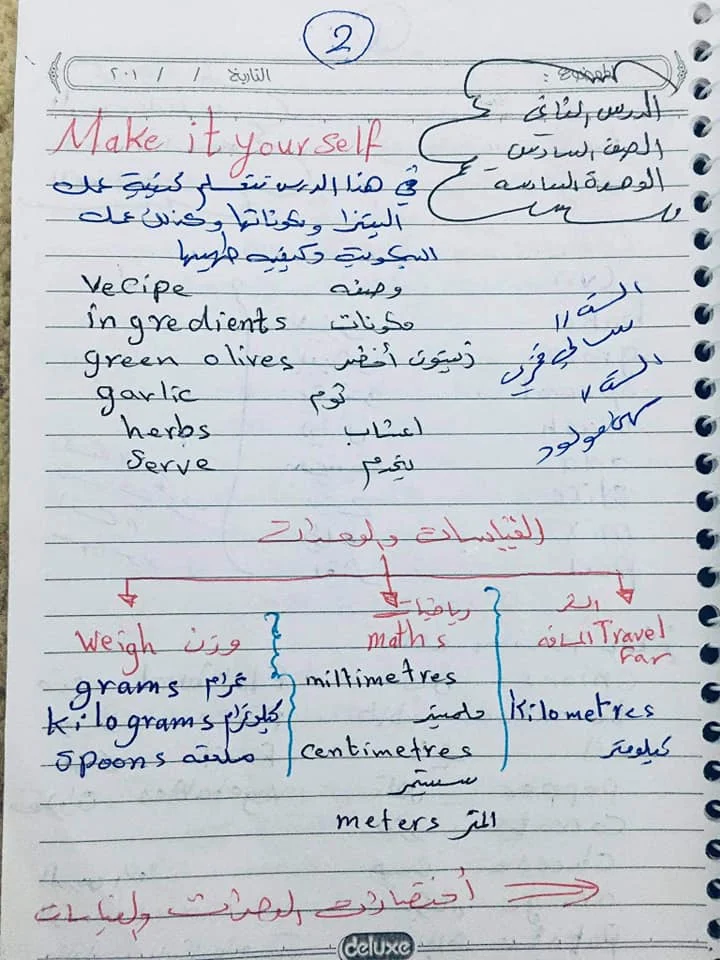 2
الموضوع : التاريخ / / ٢٠١
الدرس الثاني
الصف السادس
الوحدة السادسة
Make it yourself
في هذا الدرس نتعلم كيفية عمل
البيتزا ومكوناتها وكذلك عمل
البسكويت وكيفيه طهيها
recipe وصفه
ingredients مكونات
green olives زيتون أخضر
garlic ثوم
herbs اعشاب
Serve يخدم
الست ١١
الست ٧
القياسات والوحدات
weigh وزن
grams غرام
kilograms كيلوغرام
Spoons ملعقه
رياضيات
maths
millimetres
ملميتر
centimetres
سنتمتر
meters المتر
السفر
Travel المسافه
Far
kilometres
كيلومتر
أختصارات الوحدات والقياسات
deluxe